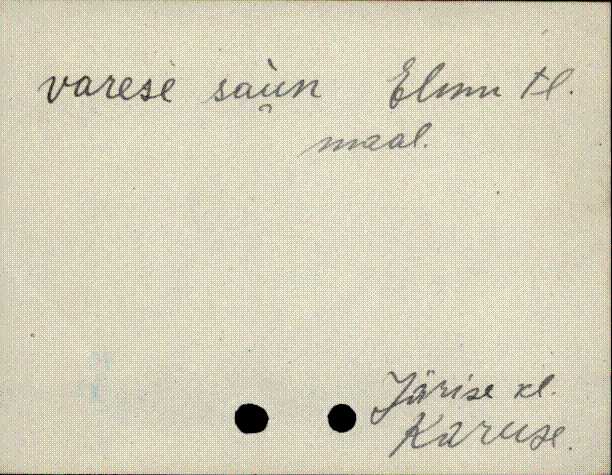 varese sàu̯n Elmu tl.
maal.
Järise kl.
Karuse.